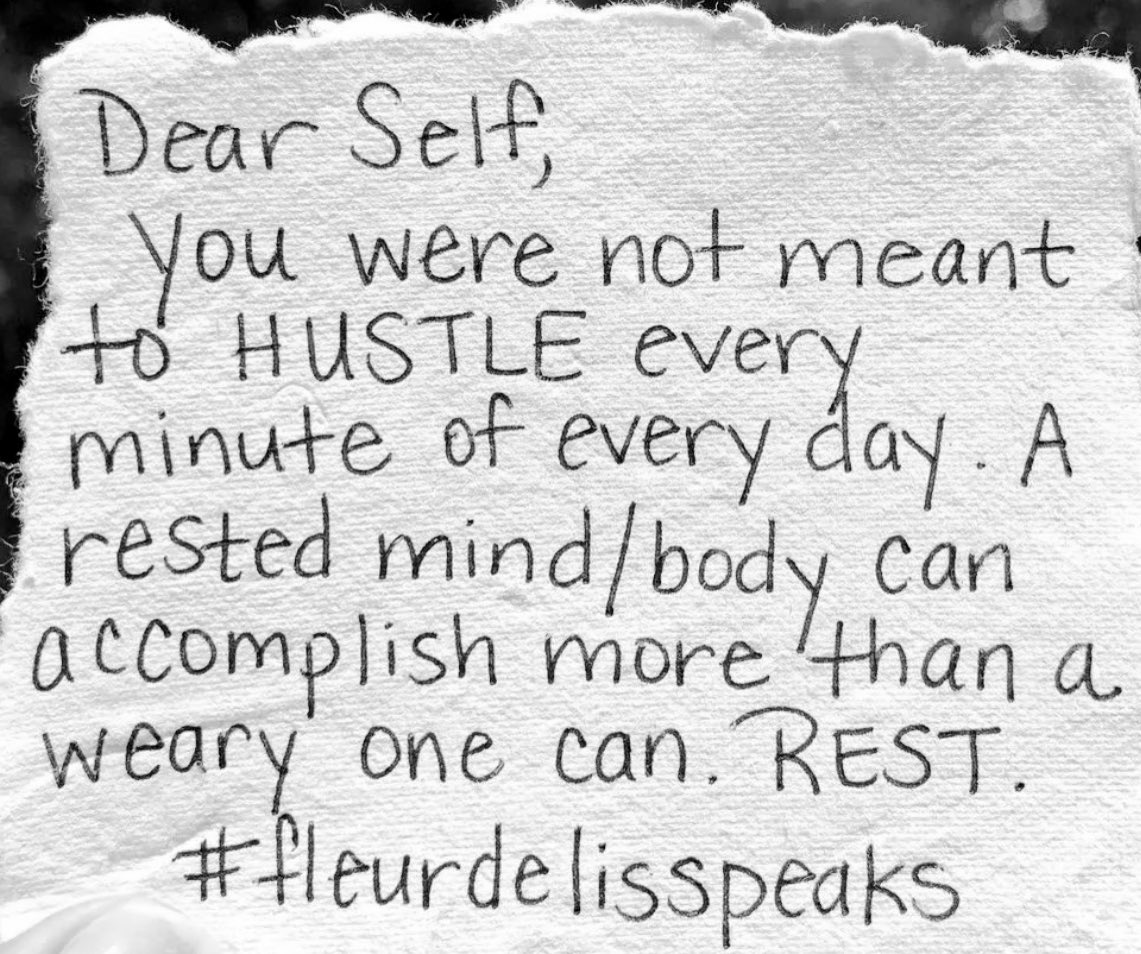 Dear Self,
you were not meant
to HUSTLE every
minute of every day. A
rested mind/body can
accomplish more than a
weary one can. REST.
#fleurdelisspeaks